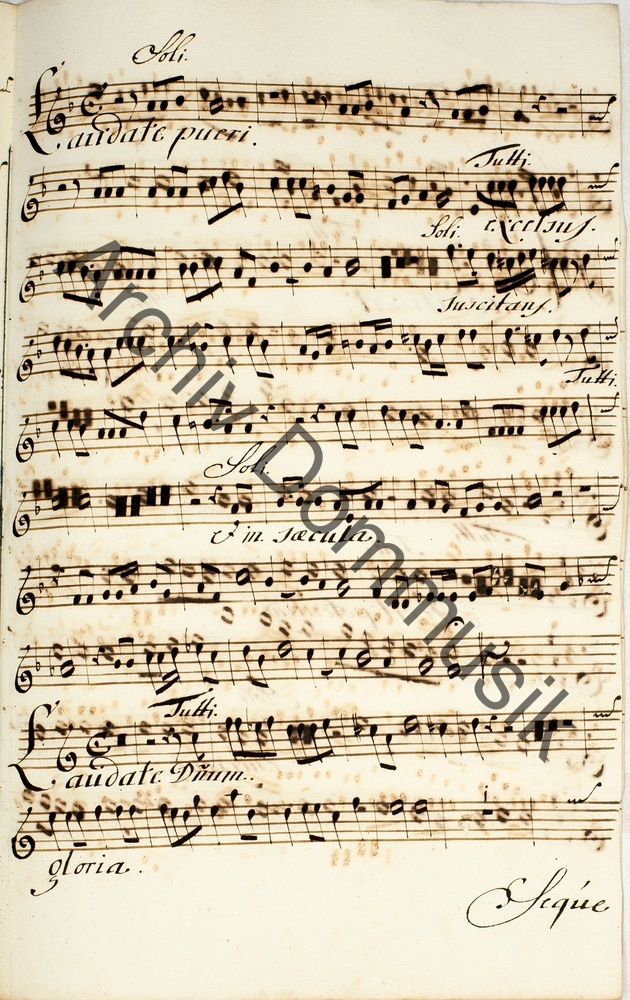 Soli.
Laudate pueri.
Tutti.
excelsus.
Soli.
suscitans.
Tutti.
Soli.
& in sæcula.
Tutti.
Laudate Dñum.
gloria.
Seque
Archiv Dommusik